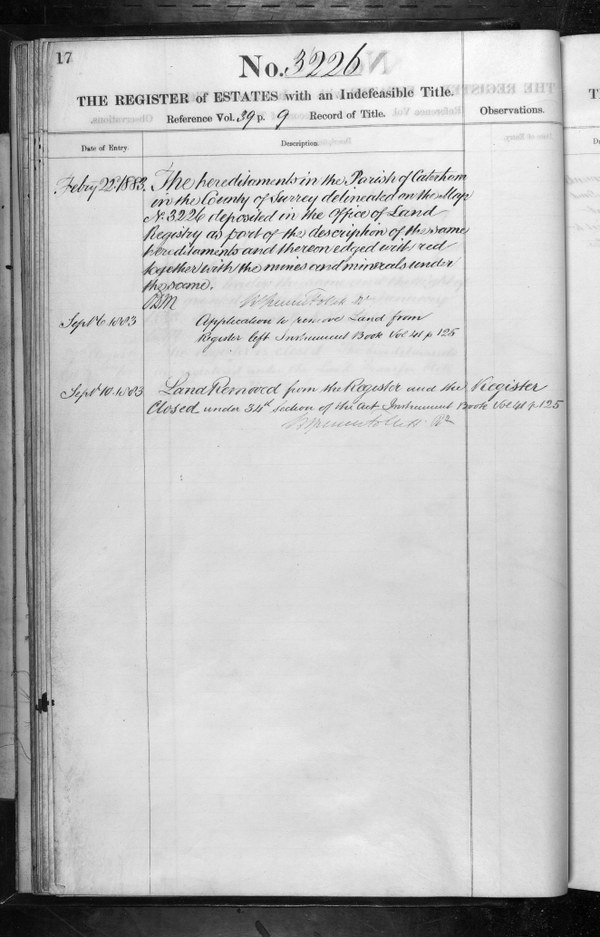 17
No. 3226
THE REGISTER of ESTATES with an Indefeasible Title.
Reference Vol. 39 p. 9 Record of Title.
Observations.
Date of Entry.
Description.
Febry 22d 1883. The hereditaments in the Parish of Caterham
in the County of Surrey delineated on the Map
No. 3226 deposited in the Office of Land
Registry as part of the description of the same
hereditaments and thereon edged with red
together with the mines and minerals under
the same.
Septr 6. 1883 Application to remove Land from
Register left Instrument Book Vol 41 p 125
Septr 10. 1883 Land Removed from the Register and the Register
Closed under 34th Section of the Act Instrument Book Vol 41 p. 125